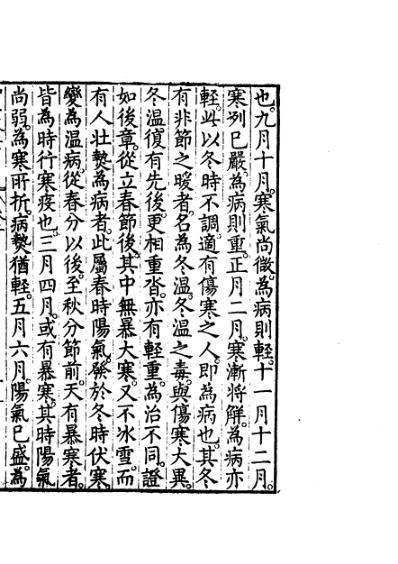 也。九月十月。寒氣尚微。為病則輕。十一月十二月。
寒列已嚴。為病則重。正月二月。寒漸將解。為病亦
輕。此以冬時不調。適有傷寒之人。即為病也。其冬
有非節之暖者。名為冬溫。冬溫之毒。與傷寒大異。
冬溫復有先後。更相重沓。亦有輕重。為治不同。證
如後章。從立春節後。其中無暴大寒。又不冰雪。而
有人壯熱為病者。此屬春時陽氣。發於冬時伏寒。
變為溫病。從春分以後。至秋分節前。天有暴寒者。
皆為時行寒疫也。三月四月。或有暴寒。其時陽氣
尚弱。為寒所折。病熱猶輕。五月六月。陽氣已盛。為